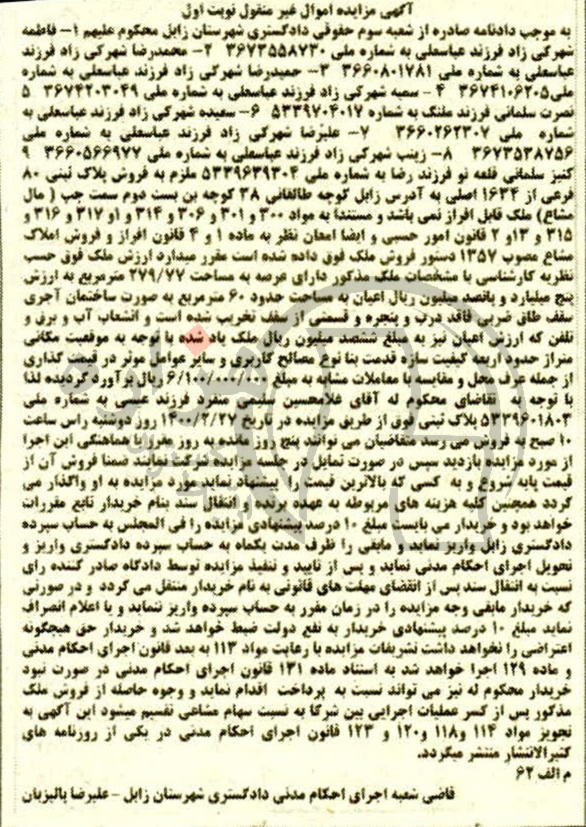 آگهی مزایده اموال غیر منقول نوبت اول
به موجب دادنامه صادره از شعبه سوم حقوقی دادگستری شهرستان زابل محکوم علیهم ۱- فاطمه
شهرکی زاد فرزند عباسعلی به شماره ملی ۳۶۷۳۵۵۸۷۳۰ ۲- محمدرضا شهرکی زاد فرزند
عباسعلی به شماره ملی ۳۶۶۰۸۰۱۷۸۱ ۳- حمیدرضا شهرکی زاد فرزند عباسعلی به شماره
ملی ۳۶۷۴۱۰۶۲۰۵ ۴- سمیه شهرکی زاد فرزند عباسعلی به شماره ملی ۳۶۷۴۲۰۳۰۴۹ ۵
نصرت سلمانی فرزند ملنگ به شماره ۵۳۳۹۷۰۴۰۱۷ ۶- سعیده شهرکی زاد فرزند عباسعلی به
شماره ملی ۳۶۶۰۲۶۲۳۰۷ ۷- علیرضا شهرکی زاد فرزند عباسعلی به شماره ملی
۳۶۷۳۵۳۸۷۵۶ ۸- زینب شهرکی زاد فرزند عباسعلی به شماره ملی ۳۶۶۰۵۶۶۹۷۷ ۹
کنیز سلمانی قلعه نو فرزند رضا به شماره ملی ۵۳۳۹۶۳۹۳۰۴ ملزم به فروش پلاک ثبتی ۸۰
فرعی از ۱۶۳۴ اصلی به آدرس زابل کوچه طالقانی ۳۸ کوچه بن بست دوم سمت چپ ( مال
مشاع) ملک قابل افراز نمی باشد و مستندا به مواد ۳۰۰ و ۳۰۱ و ۳۰۶ و ۳۱۴ و او ۳۱۷ و ۳۱۶ و
۳۱۵ و ۱۳و ۲ قانون امور حسبی و ایضا امعان نظر به ماده ۱ و ۴ قانون افراز و فروش املاک
مشاع مصوب ۱۳۵۷ دستور فروش ملک فوق داده شده است مقرر میدارد ارزش ملک فوق حسب
نظریه کارشناسی با مشخصات ملک مذکور دارای عرصه به مساحت ۲۷۹/۷۷ مترمربع به ارزش
پنج میلیارد و پانصد میلیون ریال اعیان به مساحت حدود ۶۰ مترمربع به صورت ساختمان آجری
سقف طاق ضربی فاقد درب و پنجره و قسمتی از سقف تخریب شده است و انشعاب آب و برق و
تلفن که ارزش اعیان نیز به مبلغ ششصد میلیون ریال ملک یاد شده با توجه به موقعیت مکانی
متراژ حدود اربعه کیفیت سازه قدمت بنا نوع مصالح کاربری و سایر عوامل موثر در قیمت گذاری
از جمله عرف محل و مقایسه با معاملات مشابه به مبلغ ۶/۱۰۰/۰۰۰/۰۰۰ ریال برآورد گردیده لذا
با توجه به تقاضای محکوم له آقای غلامحسین سلیمی منفرد فرزند عیسی به شماره ملی
۵۳۳۹۶۰۱۸۰۳ پلاک ثبتی فوق از طریق مزایده در تاریخ ۱۴۰۰/۲/۲۷ روز دوشنبه راس ساعت
۱۰ صبح به فروش می رسد متقاضیان می توانند پنج روز مانده به روز مقرر با هماهنگی این اجرا
از مورد مزایده بازدید سپس در صورت تمایل در جلسه مزایده شرکت نمایند ضمنا فروش آن از
قیمت پایه شروع و به کسی که بالاترین قیمت را پیشنهاد نماید مورد مزایده به او واگذار می
گردد همچنین کلیه هزینه های مربوطه به عهده برنده و انتقال سند بنام خریدار تابع مقررات
خواهد بود و خریدار می بایست مبلغ ۱۰ درصد پیشنهادی مزایده را فی المجلس به حساب سپرده
دادگستری زابل واریز نماید و مابقی را ظرف مدت یکماه به حساب سپرده دادگستری واریز و
تحویل اجرای احکام مدنی نماید و پس از تایید و تنفیذ مزایده توسط دادگاه صادر کننده رای
نسبت به انتقال سند پس از انقضای مهلت های قانونی به نام خریدار منتقل می گردد و در صورتی
که خریدار مابقی وجه مزایده را در زمان مقرر به حساب سپرده واریز ننماید و یا اعلام انصراف
نماید مبلغ ۱۰ درصد پیشنهادی خریدار به نفع دولت ضبط خواهد شد و خریدار حق هیچگونه
اعتراضی را نخواهد داشت تشریفات مزایده با رعایت مواد ۱۱۳ به بعد قانون اجرای احکام مدنی
و ماده ۱۲۹ اجرا خواهد شد به استناد ماده ۱۳۱ قانون اجرای احکام مدنی در صورت نبود
خریدار محکوم له نیز می تواند نسبت به پرداخت اقدام نماید و وجوه حاصله از فروش ملک
مذکور پس از کسر عملیات اجرایی بین شرکا به نسبت سهام مشاعی تقسیم میشود این آگهی به
تجویز مواد ۱۱۴ و۱۱۸ و۱۲۰ و ۱۲۳ قانون اجرای احکام مدنی در یکی از روزنامه های
کثیرالانتشار منتشر میگردد.
م الف ۶۲
قاضی شعبه اجرای احکام مدنی دادگستری شهرستان زابل - علیرضا پالیزبان